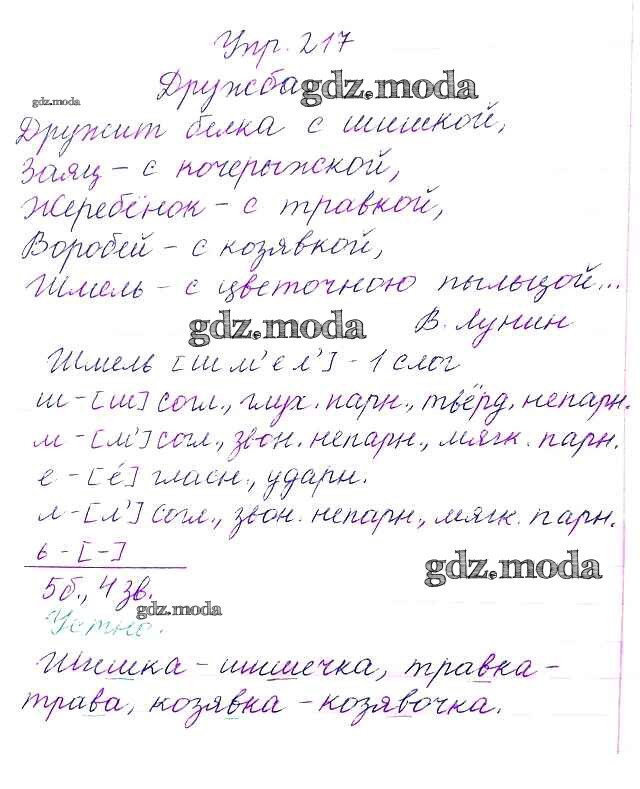 Упр. 217
Дружба gdz.moda
gdz.moda
Дружит белка с шишкой,
Заяц – с кочерыжской,
Жеребёнок – с травкой,
Воробей – с козявкой,
Шмель – с цветочною пыльцой...
gdz.moda В. Лунин
Шмель [шм'ел'] - 1 слог
ш - [ш] согл., глух. парн., твёрд. непарн.
м - [м'] согл., звон. непарн., мягк. парн.
е - [é] гласн., ударн.
л - [л'] согл., звон. непарн., мягк. парн.
ь - [-]
gdz.moda
5б., 4 зв.
gdz.moda
Устно.
Шишка – шишечка, травка –
трава, козявка – козявочка.